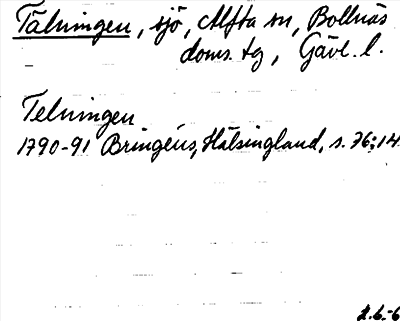 Tälningen, sjö, Alfta sn, Bollnäs
doms. tg, Gävl. l.
Telningen
1790-91 Bringéus, Hälsingland, s. 76:14.